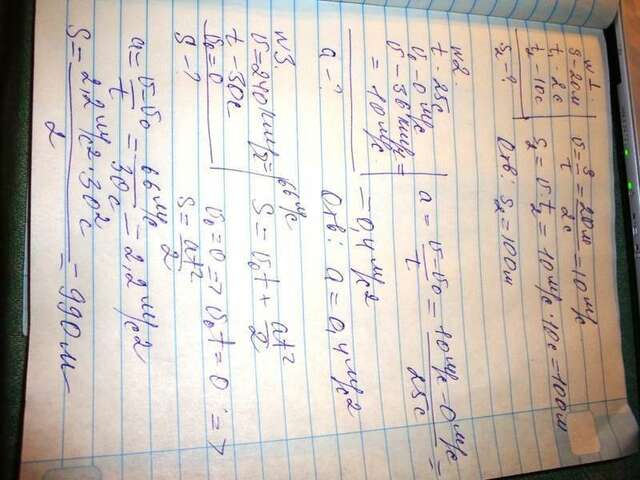 №1.
S - 20м
t₁ 2с
t₂ - 10с
S₂ - ?
υ = S/t = 20м/2с = 10 м/с
S₂ = υt₂ = 10 м/с · 10с = 100м
Отв: S₂ = 100м
№2.
t - 25с
υ₀ - 0 м/с
υ - 36 км/ч =
= 10 м/с
a - ?
a = υ-υ₀/t = 10 м/с - 0 м/с/25с =
= 0,4 м/с²
Отв: a = 0,4 м/с²
№3
υ = 240 км/ч = 66 м/с
t - 30с
υ₀ = 0
S - ?
S = υ₀t + at²/2
υ₀ = 0 => υ₀t = 0 =>
S = at²/2
a = υ-υ₀/t = 66 м/с/30с = 2,2 м/с²
S = 2,2 м/с² · 30² с/2 = 990м